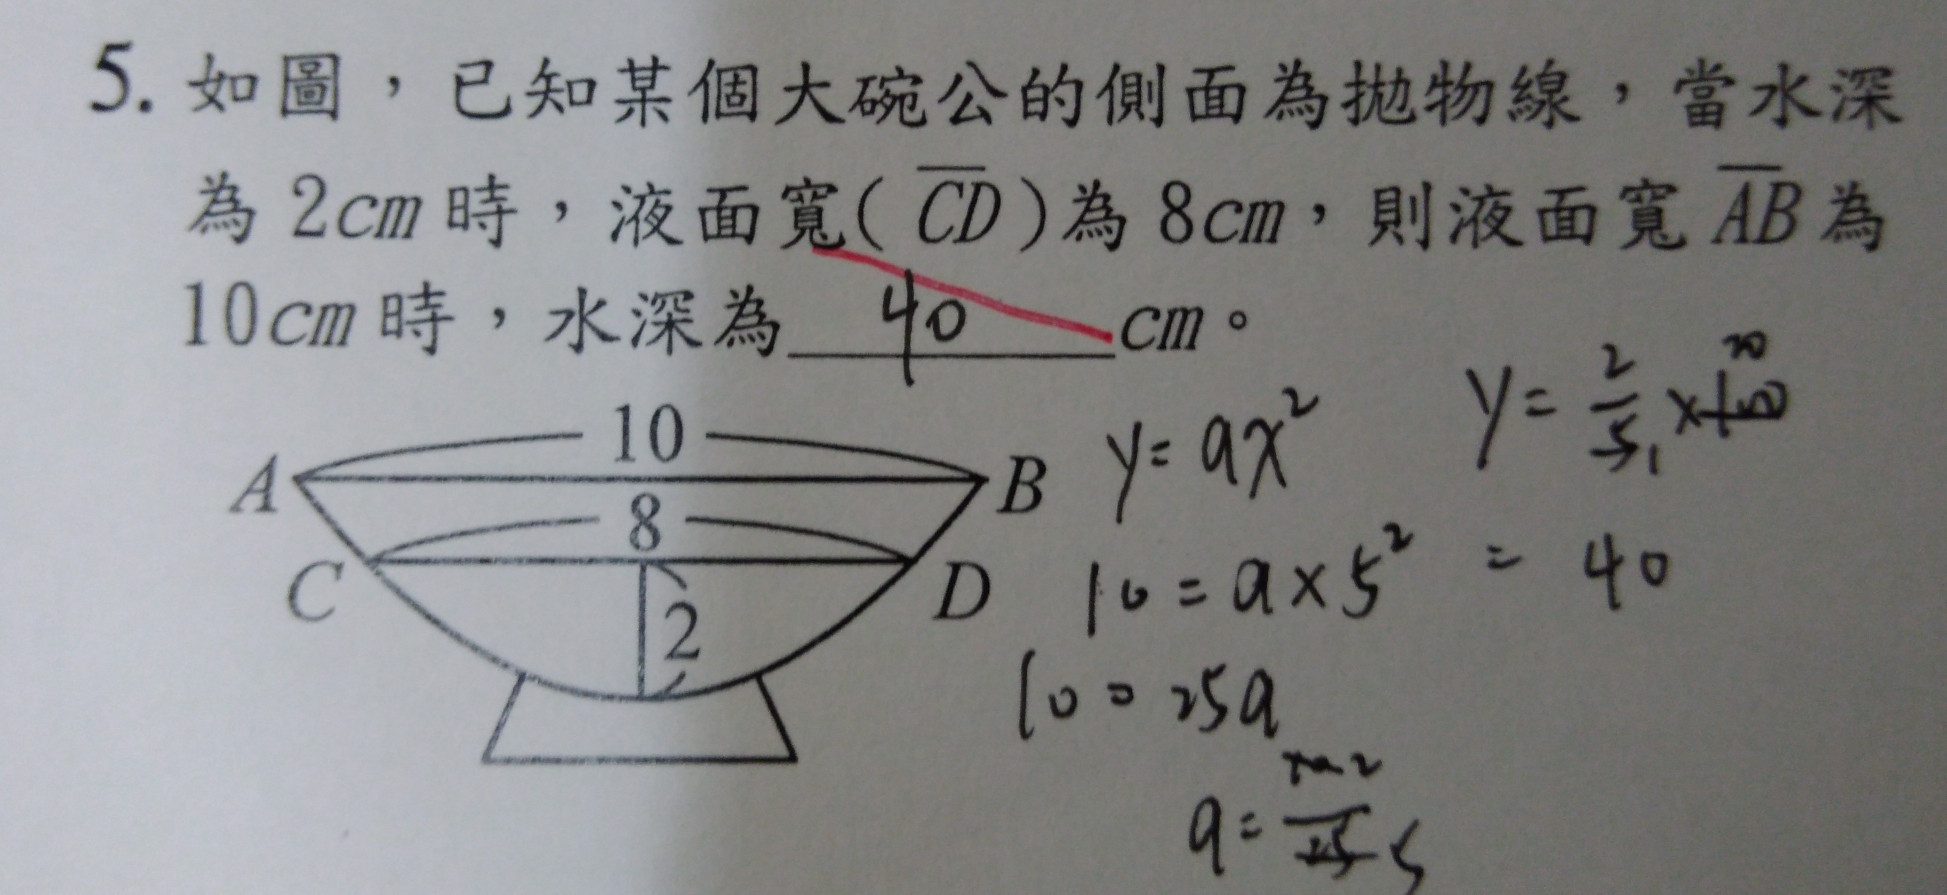 5. 如圖，已知某個大碗公的側面為拋物線，當水深
為 2cm 時，液面寬( CD )為 8cm，則液面寬 AB 為
10cm 時，水深為 40 cm。
10
A B
8
C D
2
y=ax²
10=a×5²
10=25a
a= 2 25 5
y= 2 5 1 ×100 20
= 40